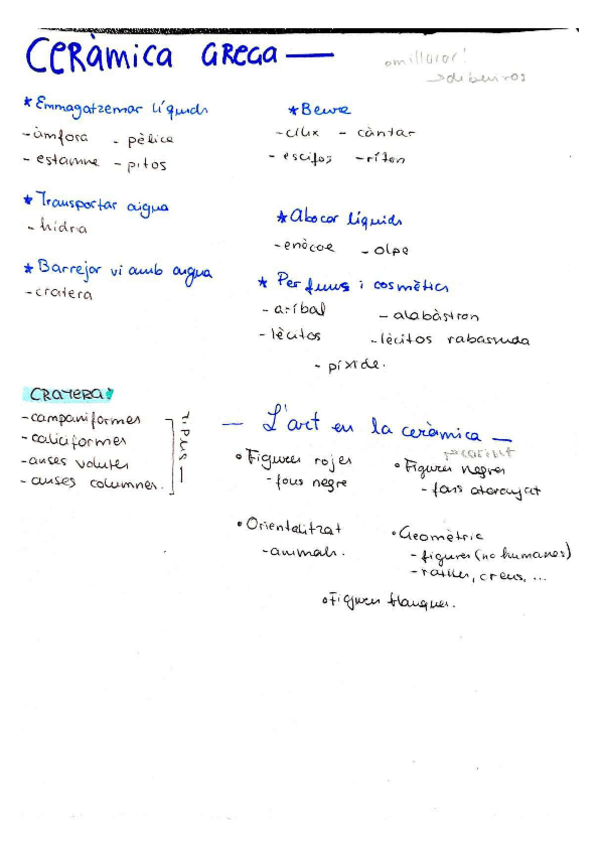 CERÀMICA GREGA —
* Emmagatzemar líquids
- àmfora - pèlice
- estamne - pitos
* Beure
- cílix - càntar
- escifos - ríton
* Transportar aigua
- hídria
* Abocar líquids
- enòcoe - olpe
* Barrejar vi amb aigua
- cratera
* Perfums i cosmètics
- aríbal - alabàstron
- lècitos - lècitos rabassuda
- píxide.
CRATERA:
- campaniformes
- caliciformes
- anses volutes
- anses columnes.
TIPUS —
— L'art en la ceràmica —
• Figures rojes
- fons negre
• Figures negres
- fons ataronjat
• Orientalitzat
- animals.
• Geomètric
- figures (no humanes)
- ratlles, creus, ...
• Figures blanques.